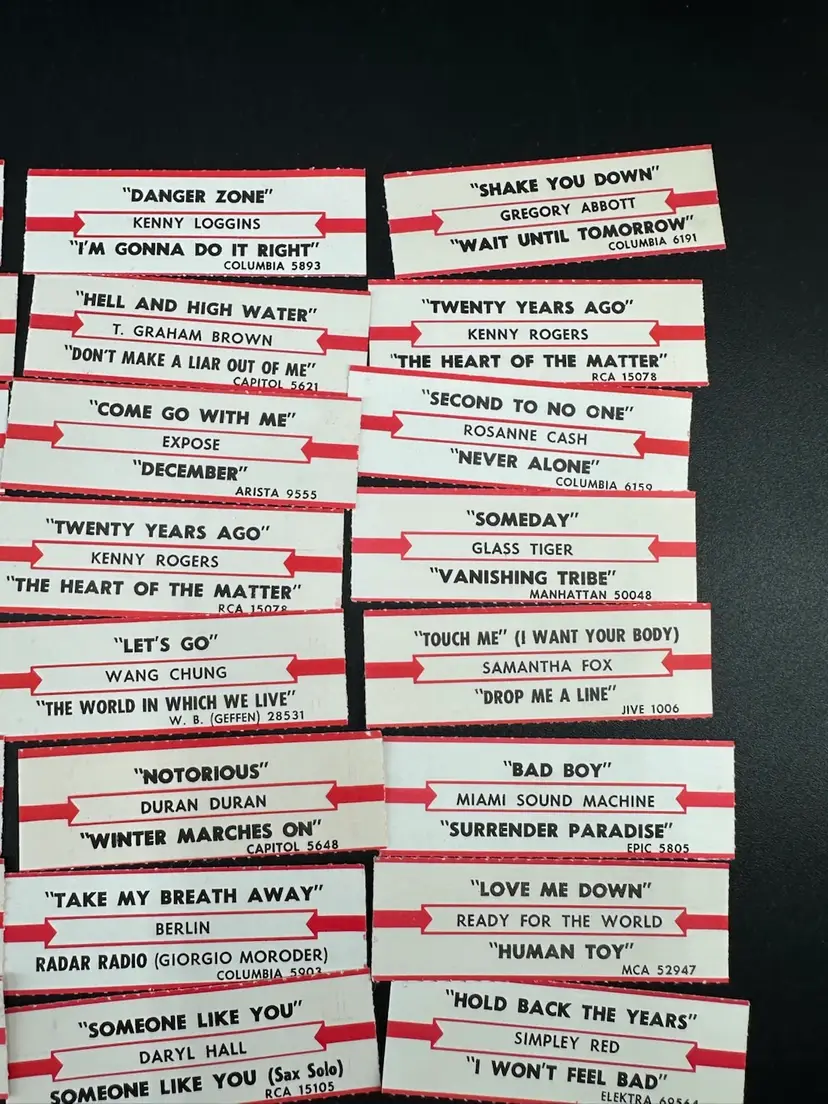 "DANGER ZONE"
KENNY LOGGINS
"I'M GONNA DO IT RIGHT"
COLUMBIA 5893
"HELL AND HIGH WATER"
T. GRAHAM BROWN
"DON'T MAKE A LIAR OUT OF ME"
CAPITOL 5621
"COME GO WITH ME"
EXPOSE
"DECEMBER"
ARISTA 9555
"TWENTY YEARS AGO"
KENNY ROGERS
"THE HEART OF THE MATTER"
RCA 15078
"LET'S GO"
WANG CHUNG
"THE WORLD IN WHICH WE LIVE"
W. B. (GEFFEN) 28531
"NOTORIOUS"
DURAN DURAN
"WINTER MARCHES ON"
CAPITOL 5648
"TAKE MY BREATH AWAY"
BERLIN
RADAR RADIO (GIORGIO MORODER)
COLUMBIA 5903
"SOMEONE LIKE YOU"
DARYL HALL
SOMEONE LIKE YOU (Sax Solo)
RCA 15105
"SHAKE YOU DOWN"
GREGORY ABBOTT
"WAIT UNTIL TOMORROW"
COLUMBIA 6191
"TWENTY YEARS AGO"
KENNY ROGERS
"THE HEART OF THE MATTER"
RCA 15078
"SECOND TO NO ONE"
ROSANNE CASH
"NEVER ALONE"
COLUMBIA 6159
"SOMEDAY"
GLASS TIGER
"VANISHING TRIBE"
MANHATTAN 50048
"TOUCH ME" (I WANT YOUR BODY)
SAMANTHA FOX
"DROP ME A LINE"
JIVE 1006
"BAD BOY"
MIAMI SOUND MACHINE
"SURRENDER PARADISE"
EPIC 5805
"LOVE ME DOWN"
READY FOR THE WORLD
"HUMAN TOY"
MCA 52947
"HOLD BACK THE YEARS"
SIMPLEY RED
"I WON'T FEEL BAD"
ELEKTRA 69564